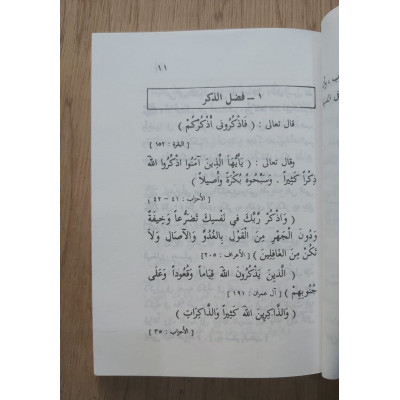 ١١
١ – فضل الذكر
قال تعالى : ( فَاذْكُرُونِي أَذْكُرْكُمْ )
[ البقرة : ١٥٢ ]
وقال تعالى : ( يَأَيُّهَا الَّذِينَ آمَنُوا اذْكُرُوا اللهَ
ذِكْراً كَثِيراً . وَسَبِّحُوهُ بُكْرَةً وَأَصِيلاً )
[ الأحزاب : ٤١ – ٤٢ ]
( وَاذْكُرْ رَبَّكَ في نَفْسِكَ تَضَرُّعاً وَخِيفَةً
وَدُونَ الْجَهْرِ مِنَ الْقَوْلِ بِالْغُدُوِّ وَالآصَالِ وَلاَ
تَكُنْ مِنَ الغَافِلِينَ ) [ الأعراف : ٢٠٥ ]
( الَّذِينَ يَذْكُرُونَ اللهَ قِيَاماً وَقُعُوداً وَعَلَى
جُنُوبِهِمْ ) [ آل عمران : ١٩١ ]
( وَالذَّاكِرِينَ اللهَ كَثِيراً وَالذَّاكِرَاتِ )
[ الأحزاب : ٣٥ ]